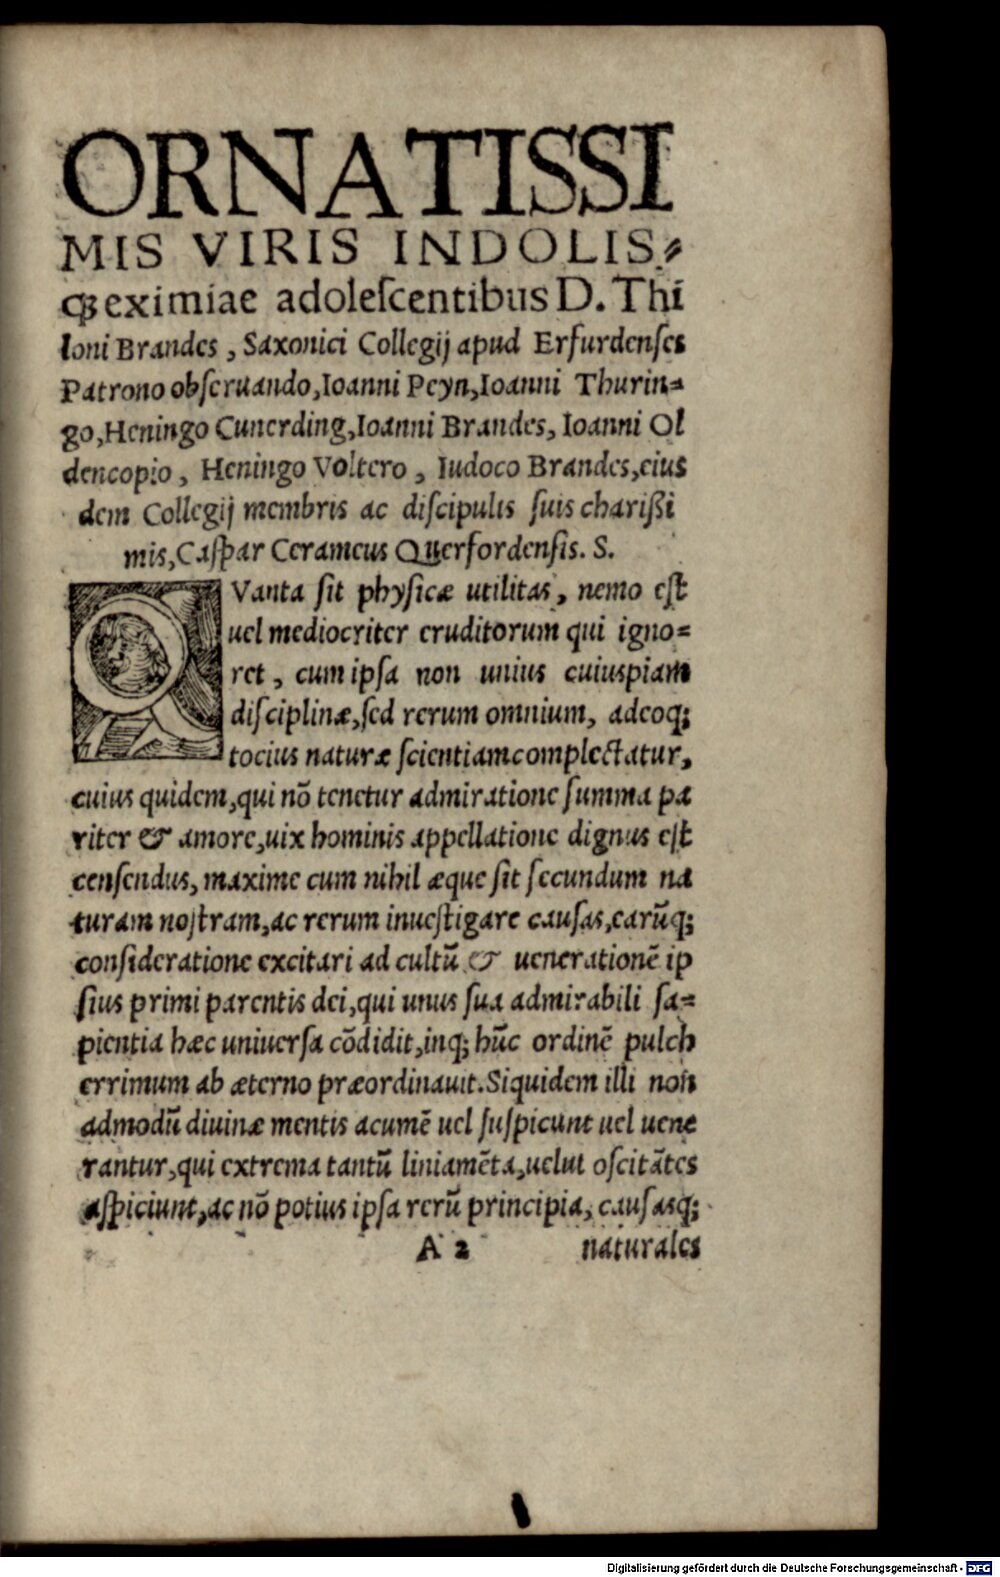 ORNATISSI
MIS VIRIS INDOLIS⸗
q́ꝫ eximiae adoleſcentibus D. Thi
loni Brandes, Saxonici Collegij apud Erfurdenſes
Patrono obſeruando, Ioanni Peyn, Ioanni Thurin⸗
go, Heningo Cunerding, Ioanni Brandes, Ioanni Ol
dencopio, Heningo Voltero, Iudoco Brandes, eius
dem Collegij membris ac diſcipulis ſuis charißi
mis, Caſpar Cerameus Querfordenſis. S.
QVanta ſit phyſicæ utilitas, nemo eſt
uel mediocriter eruditorum qui igno=
ret, cum ipſa non unius cuiuspiam
diſciplinæ, ſed rerum omnium, adeoq;
tocius naturæ ſcientiam complectatur,
cuius quidem, qui nõ tenetur admiratione ſumma pa
riter & amore, uix hominis appellatione dignus eſt
cenſendus, maxime cum nihil æque ſit ſecundum na
turam noſtram, ac rerum inueſtigare cauſas, earũq;
conſideratione excitari ad cultũ & uenerationẽ ip
ſius primi parentis dei, qui unus ſua admirabili ſa=
pientia hæc uniuerſa cõdidit, inq; hũc ordinẽ pulch
errimum ab æterno præordinauit. Siquidem illi non
admodũ diuinæ mentis acumẽ uel ſuſpicunt uel uene
rantur, qui extrema tantũ liniamẽta, uelut oſcitãtes
aſpiciunt, ac nõ potius ipſa rerũ principia, cauſasq;
A 2 naturales
Digitalisierung gefördert durch die Deutsche Forschungsgemeinschaft - DFG